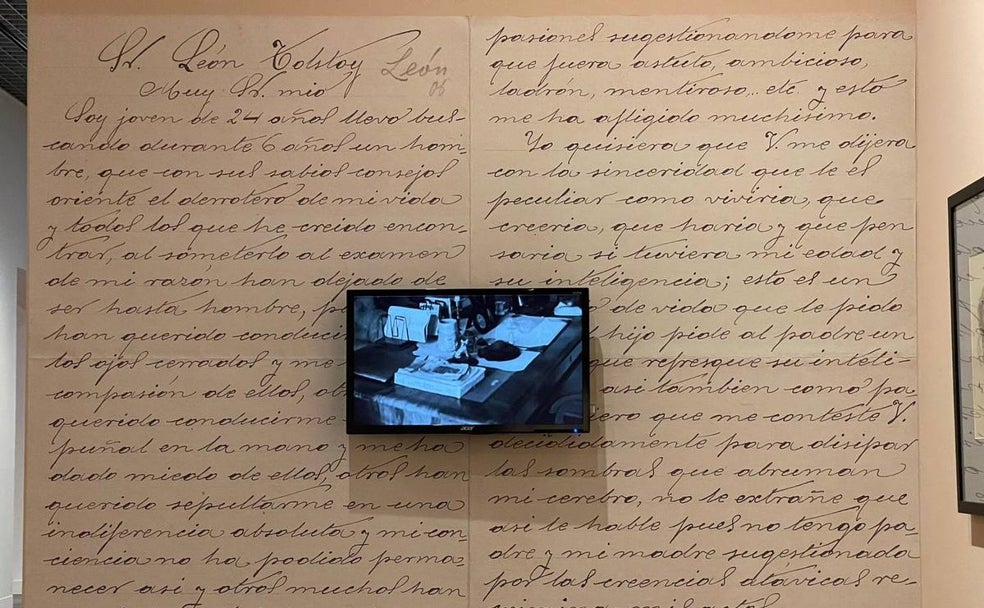 Sr. León Tolstoy
León
06
Muy Sr. mio
Soy joven de 24 años llevo bus-
cando durante 6 años un hom-
bre, que con sus sabios consejos
oriente el derrotero de mi vida
y todos los que he creido encon-
trar, al someterlo al examen
de mi razón han dejado de
ser hasta hombre,
han querido
los ojos cerrados y me
compasión de ellos,
querido conducirme
puñal en la mano y me ha
dado miedo de ellos, otros han
querido sepultarme en una
indiferencia absoluta y mi con
ciencia no ha podido perma-
necer asi y otros muchos han
pasiones sugestionandome para
que fuera astuto, ambicioso,
ladrón, mentiroso,.. etc. y esto
me ha afligido muchisimo.
Yo quisiera que V. me dijera
con la sinceridad que le es
peculiar como viviria, que
creeria, que haria y que pen
saria si tuviera mi edad y
su inteligencia; esto es un
de vida que le pido
hijo pide al padre un
que refresque su inteli-
asi tambien como pa
que me conteste V
decididamente para disipar
las sombras que abruman
mi cerebro, no le extrañe que
asi le hable pues no tengo pa-
dre y mi madre sugestionada
por las creencias atávicas re-
acer